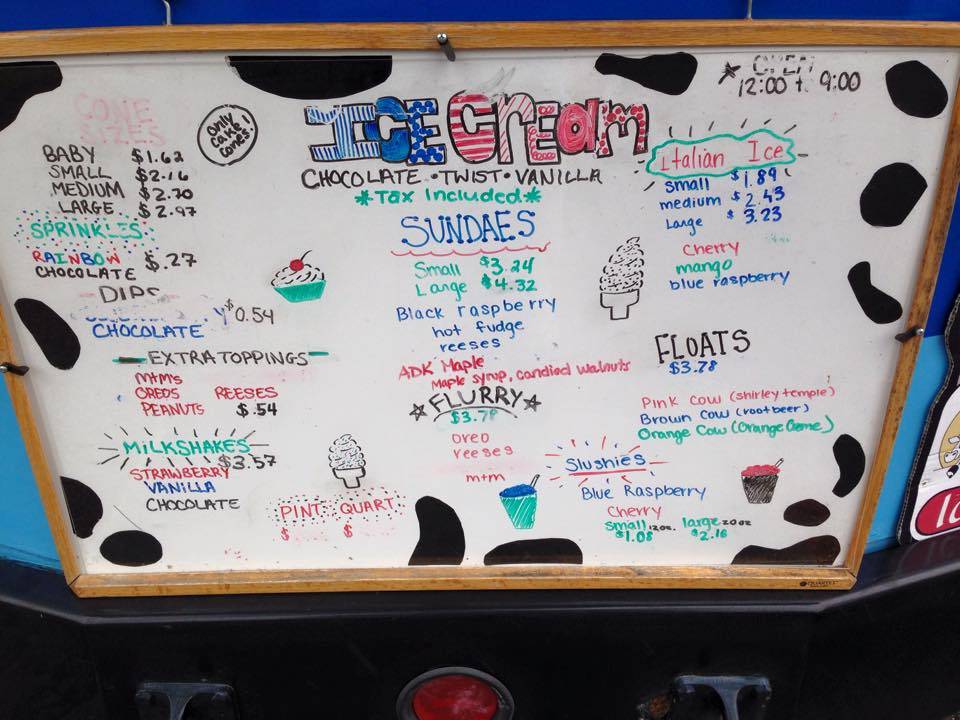 OPEN
12:00 t. 9:00
CONE
SIZES
only
cake
cones!
ICE CREAM
CHOCOLATE • TWIST • VANILLA
*Tax Included*
BABY $1.62
SMALL $2.16
MEDIUM $2.70
LARGE $2.97
SPRINKLES
RAINBOW
CHOCOLATE $.27
DIPS
$0.54
CHOCOLATE
EXTRA TOPPINGS
m+m's
OREOS REESES
PEANUTS $.54
MILKSHAKES
$3.57
STRAWBERRY
VANILLA
CHOCOLATE
PINT QUART
$ $
SUNDAES
Small $3.24
Large $4.32
Black raspberry
hot fudge
reeses
ADK Maple
Maple syrup, candied walnuts
FLURRY
$3.78
oreo
reeses
m+m
Italian Ice
Small $1.89
medium $2.43
Large $3.23
Cherry
mango
blue raspberry
FLOATS
$3.78
Pink Cow (shirley temple)
Brown Cow (rootbeer)
Orange Cow (Orange Creme)
Slushies
Blue Raspberry
Cherry
small 12oz large 20oz
$1.08 $2.16